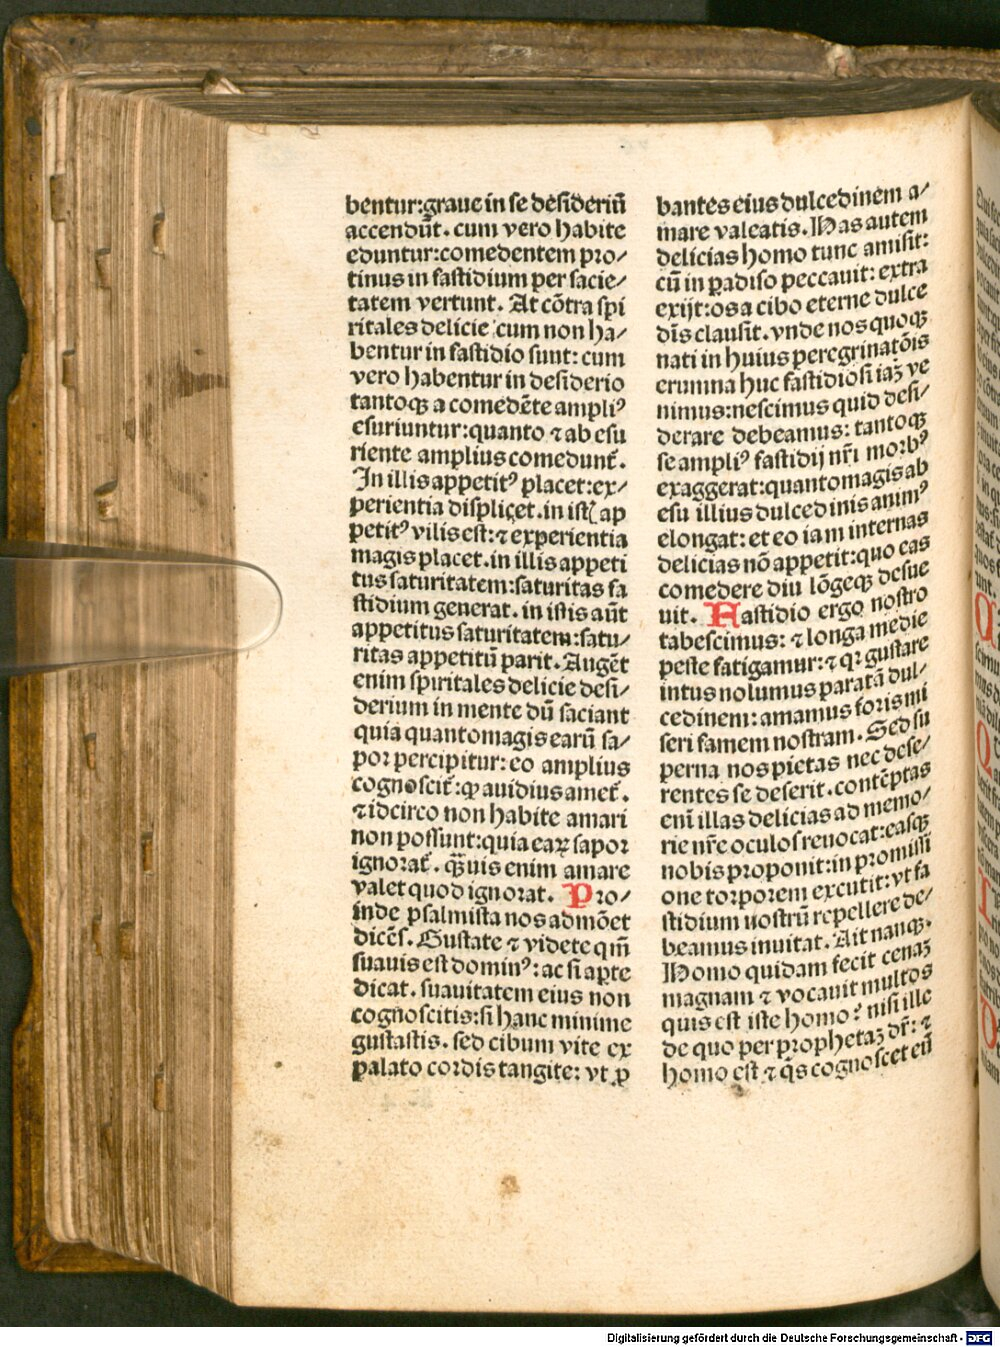 bentur:graue in se desideriū
accendūt. cum vero habite
eduntur:comedentem pro/
tinus in fastidium per sacie/
tatem vertunt. At cōtra spi
ritales delicie cum non ha/
bentur in fastidio sunt: cum
vero habentur in desiderio
tantoqꝫ a comedēte ampliꝰ
esuriuntur:quanto ⁊ ab esu
riente amplius comedunt̄.
In illis appetitꝰ placet:ex/
perientia displicet. in ist{ ap
petitꝰ vilis est:⁊ experientia
magis placet. in illis appeti
tus saturitatem:saturitas fa
stidium generat. in istis aūt
appetitus saturitatem:satu/
ritas appetitū parit. Augēt
enim spiritales delicie desi/
derium in mente dū saciant
quia quantomagis earū sa/
por percipitur: eo amplius
cognoscit̄:ꝙ auidius amet̄.
⁊ idcirco non habite amari
non possunt:quia eaꝝ sapor
ignorat̄. Qꝫuis enim amare
valet quod ignorat. Pro/
inde psalmista nos admōet
dicēs. Gustate ⁊ videte qm̄
suauis est dominꝰ: ac si aꝑte
dicat. suauitatem eius non
cognoscitis:si hanc minime
gustastis. sed cibum vite ex
palato cordis tangite: vt ꝓ
bantes eius dulcedinem a/
mare valeatis. Has autem
delicias homo tunc amisit:
cū in ꝑadiso peccauit: extra
exijt:os a cibo eterne dulce
dīs clausit. vnde nos quoqꝫ
nati in huius peregrinatōis
erumna huc fastidiosi iaꝫ ve
nimus:nescimus quid desi/
derare debeamus: tantoqꝫ
se ampliꝰ fastidij nr̄i morbꝰ
exaggerat:quantomagis ab
esu illius dulcedinis animꝰ
elongat: et eo iam internas
delicias nō appetit:quo eas
comedere diu lōgeqꝫ desue
uit. Fastidio ergo nostro
tabescimus: ⁊ longa inedie
peste fatigamur:⁊ qꝛ gustare
intus nolumus paratā dul/
cedinem: amamus foris mi
seri famem nostram. Sed su
perna nos pietas nec dese/
rentes se deserit. contēptas
eni illas delicias ad memo/
rie nr̄e oculos reuocat:easqꝫ
nobis proponit:in promissi
one torporem excutit:vt fa
stidium nostrū repellere de/
beamus inuitat. Ait nanqꝫ.
Homo quidam fecit cenaꝫ
magnam ⁊ vocauit multos
quis est iste homo? nisi ille
de quo per prophetaꝫ dr̄: ⁊
homo est ⁊ q̇s cognoscet eū
Digitalisierung gefördert durch die Deutsche Forschungsgemeinschaft - DFG